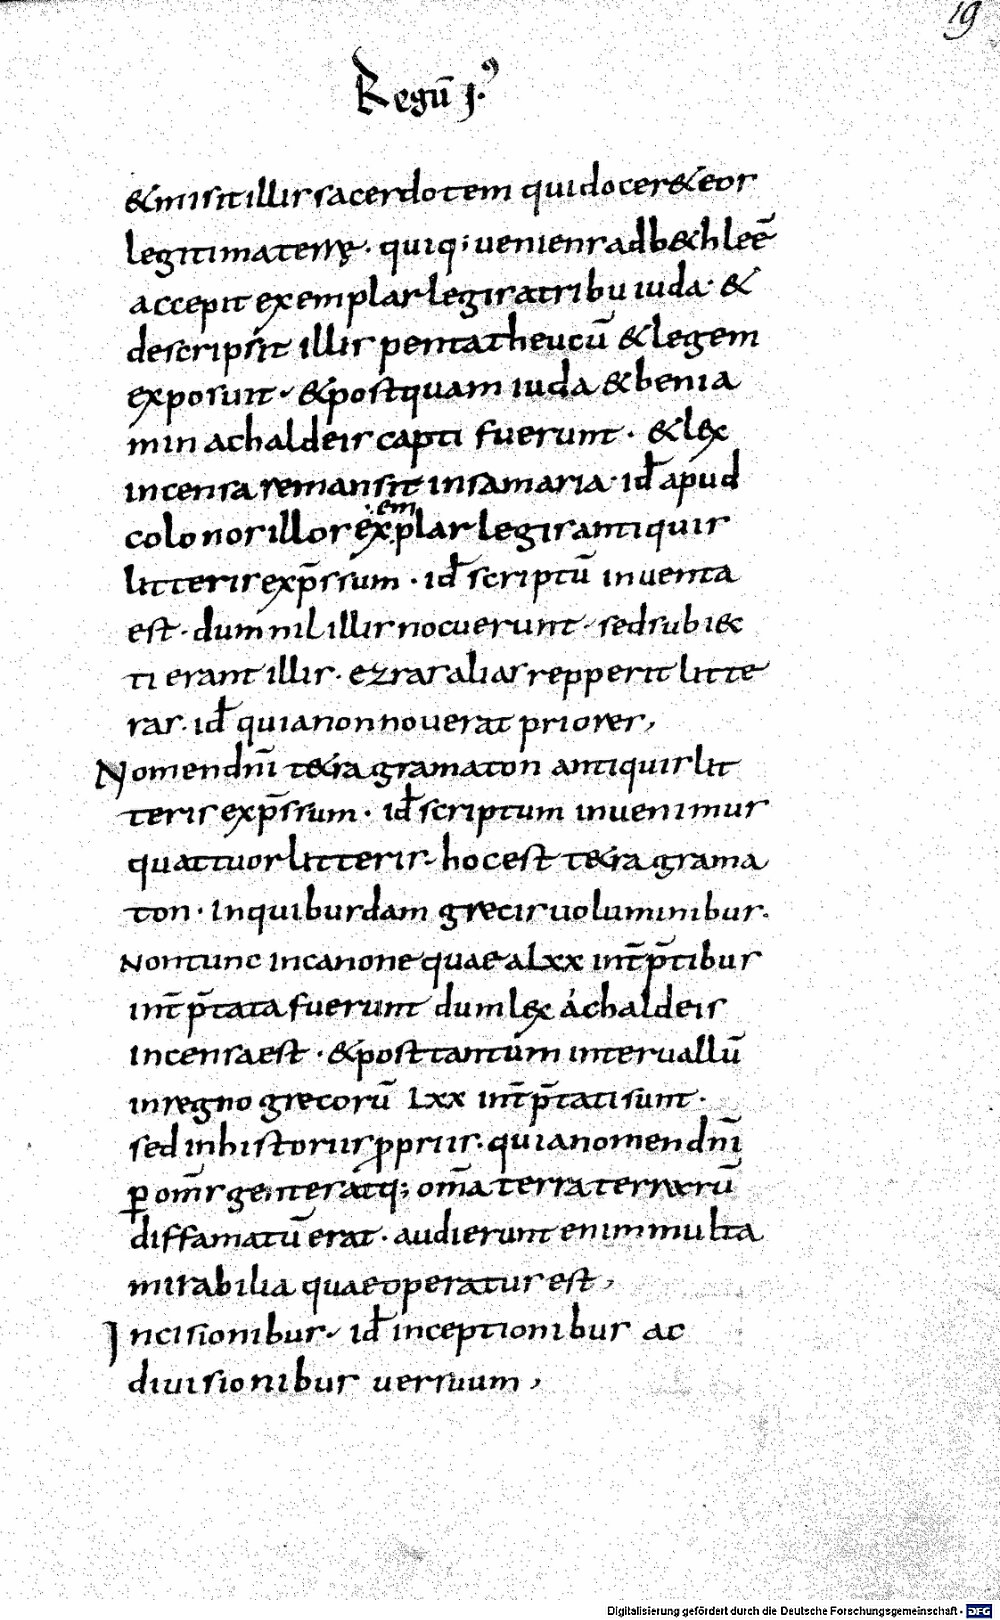 19
Regū j.⁹
&misit illis sacerdotem qui docer&eos
legitima terrę· quiq; ueniens adb&hleē
accepit exemplar legis atribu iuda· &
descripsit illis pentatheucū &legem
exposuit· &postquam iuda &benia
min achaldeis capti fuerunt· &lex
incensa remansit insamaria· id̄ apud
colonos illos exemplar legis antiquis
litteris exp̄ssum· id̄ scriptū inuenta
est· dum nil illis nocuerunt· sed subi&
ti erant illis· ezras alias repperit litte
ras· id̄ quia non nouerat priores,
Nomen dnī t&ra gramaton antiquis lit
teris exp̄ssum· id̄ scriptum inuenimus
quattuor litteris· hoc est t&ra grama
ton· Inquibusdam grecis uoluminibus·
Non tunc incanone quae aLxx int̄p̄tibus
int̄p̄tata fuerunt dum lex áchaldeis
incensa est· &post tantum interuallū
inregno grecorū Lxx int̄p̄tati sunt·
sed inhistoriis ꝓpriis· quia nomen dnī
ꝑ om̄s gentes atq; om̄a terra terrarū
diffamatū erat· audierunt enim multa
mirabilia quae operatus est,
Incisionibus· id̄ inceptionibus ac
diuisionibus uersuum,
Digitalisierung gefördert durch die Deutsche Forschungsgemeinschaft - DFG